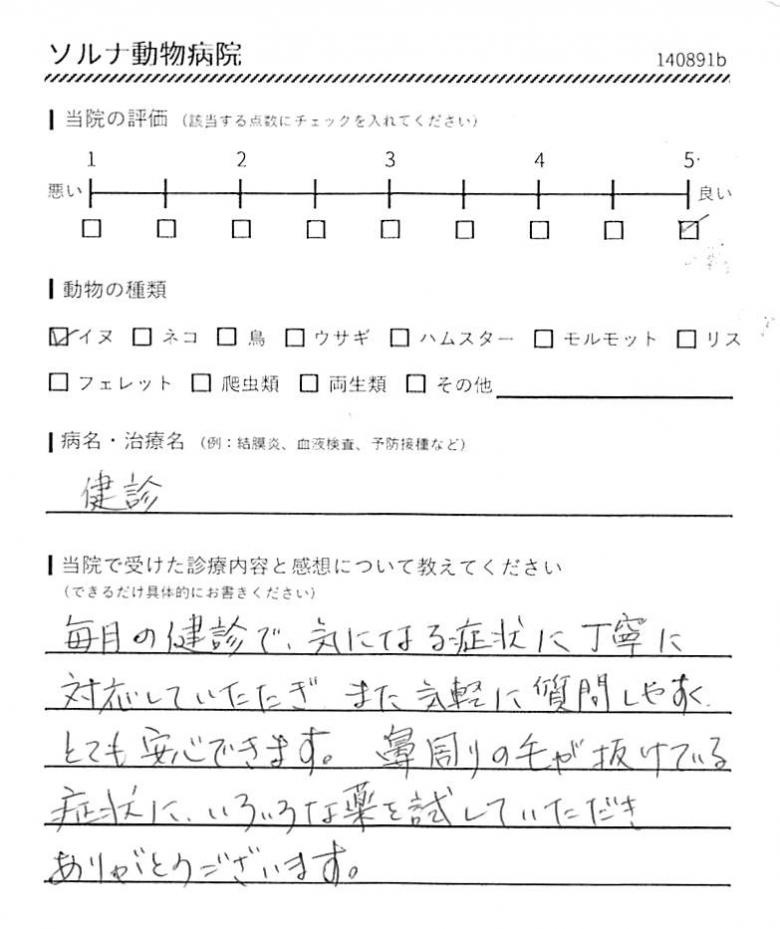 ソルナ動物病院
140891b
当院の評価 （該当する点数にチェックを入れてください）
1 2 3 4 5
悪い 良い
動物の種類
イヌ ネコ 鳥 ウサギ ハムスター モルモット リス
フェレット 爬虫類 両生類 その他
病名・治療名 （例：結膜炎、血液検査、予防接種など）
健診
当院で受けた診療内容と感想について教えてください
（できるだけ具体的にお書きください）
毎月の健診で、気になる症状に丁寧に
対応していただき また気軽に質問しやすく、
とても安心できます。 鼻周りの毛が抜けている
症状に、いろいろな薬を試していただき
ありがとうございます。